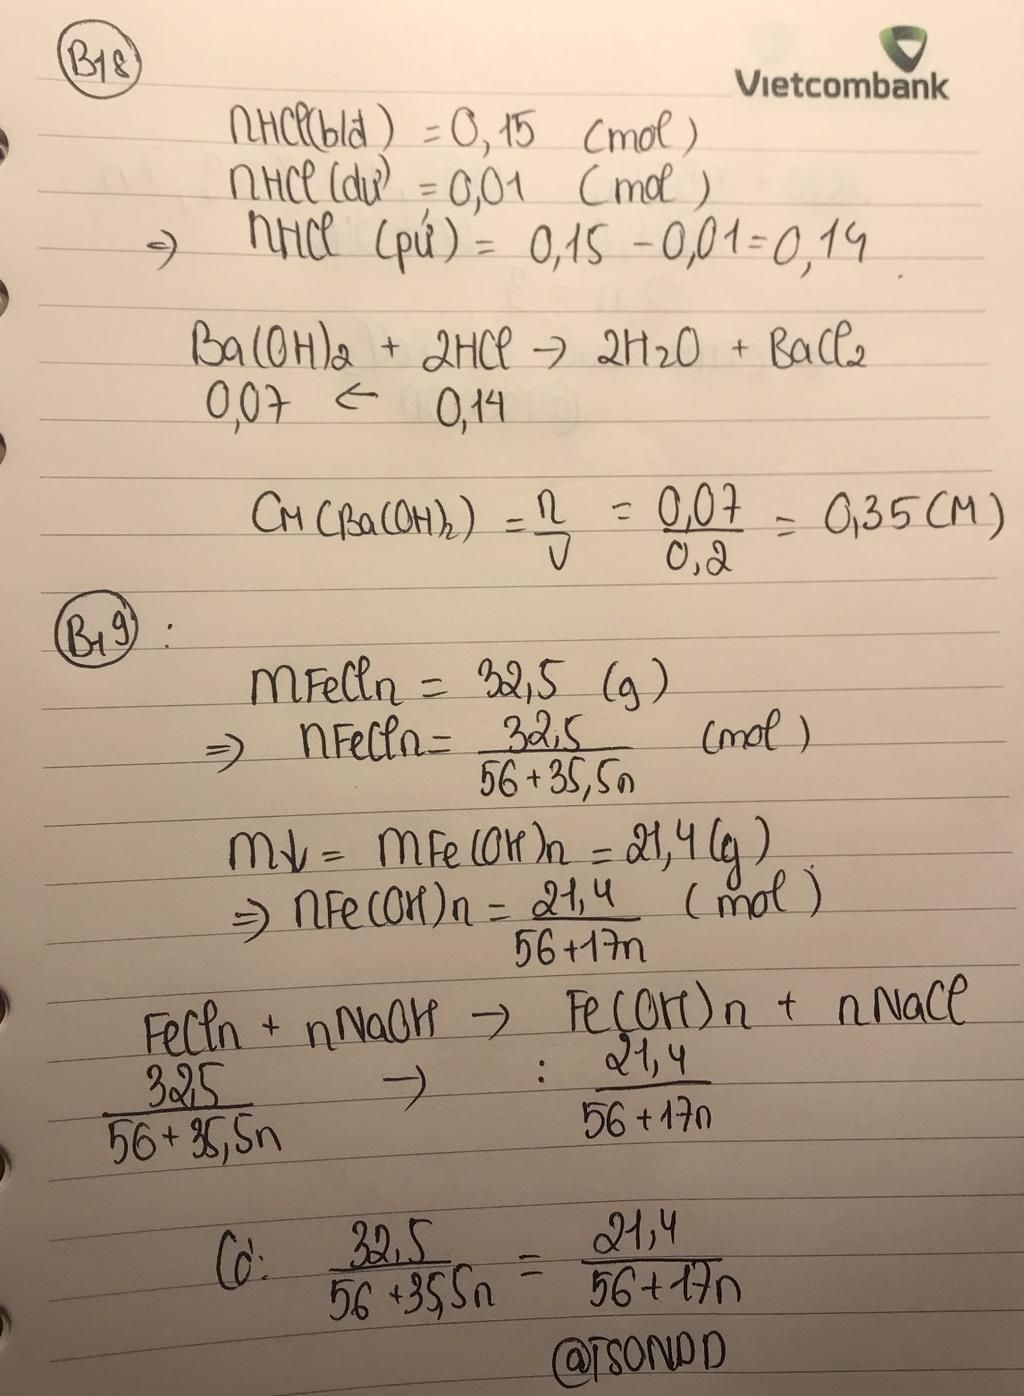 B18
Vietcombank
nHCl(bđ) = 0,15 (mol)
nHCl (dư) = 0,01 (mol)
=> nHCl (pứ) = 0,15 - 0,01 = 0,14
Ba(OH)2 + 2HCl → 2H2O + BaCl2
0,07 ← 0,14
CM (Ba(OH)2) = n/V = 0,07/0,2 = 0,35 (M)
B19 :
mFeCln = 32,5 (g)
=> nFeCln = 32,5/56+35,5n (mol)
m↓ = mFe(OH)n = 21,4 (g)
=> nFe(OH)n = 21,4/56+17n (mol)
FeCln + nNaOH → Fe(OH)n + nNaCl
32,5/56+35,5n → : 21,4/56+17n
Có: 32,5/56+35,5n = 21,4/56+17n
@TSONDD